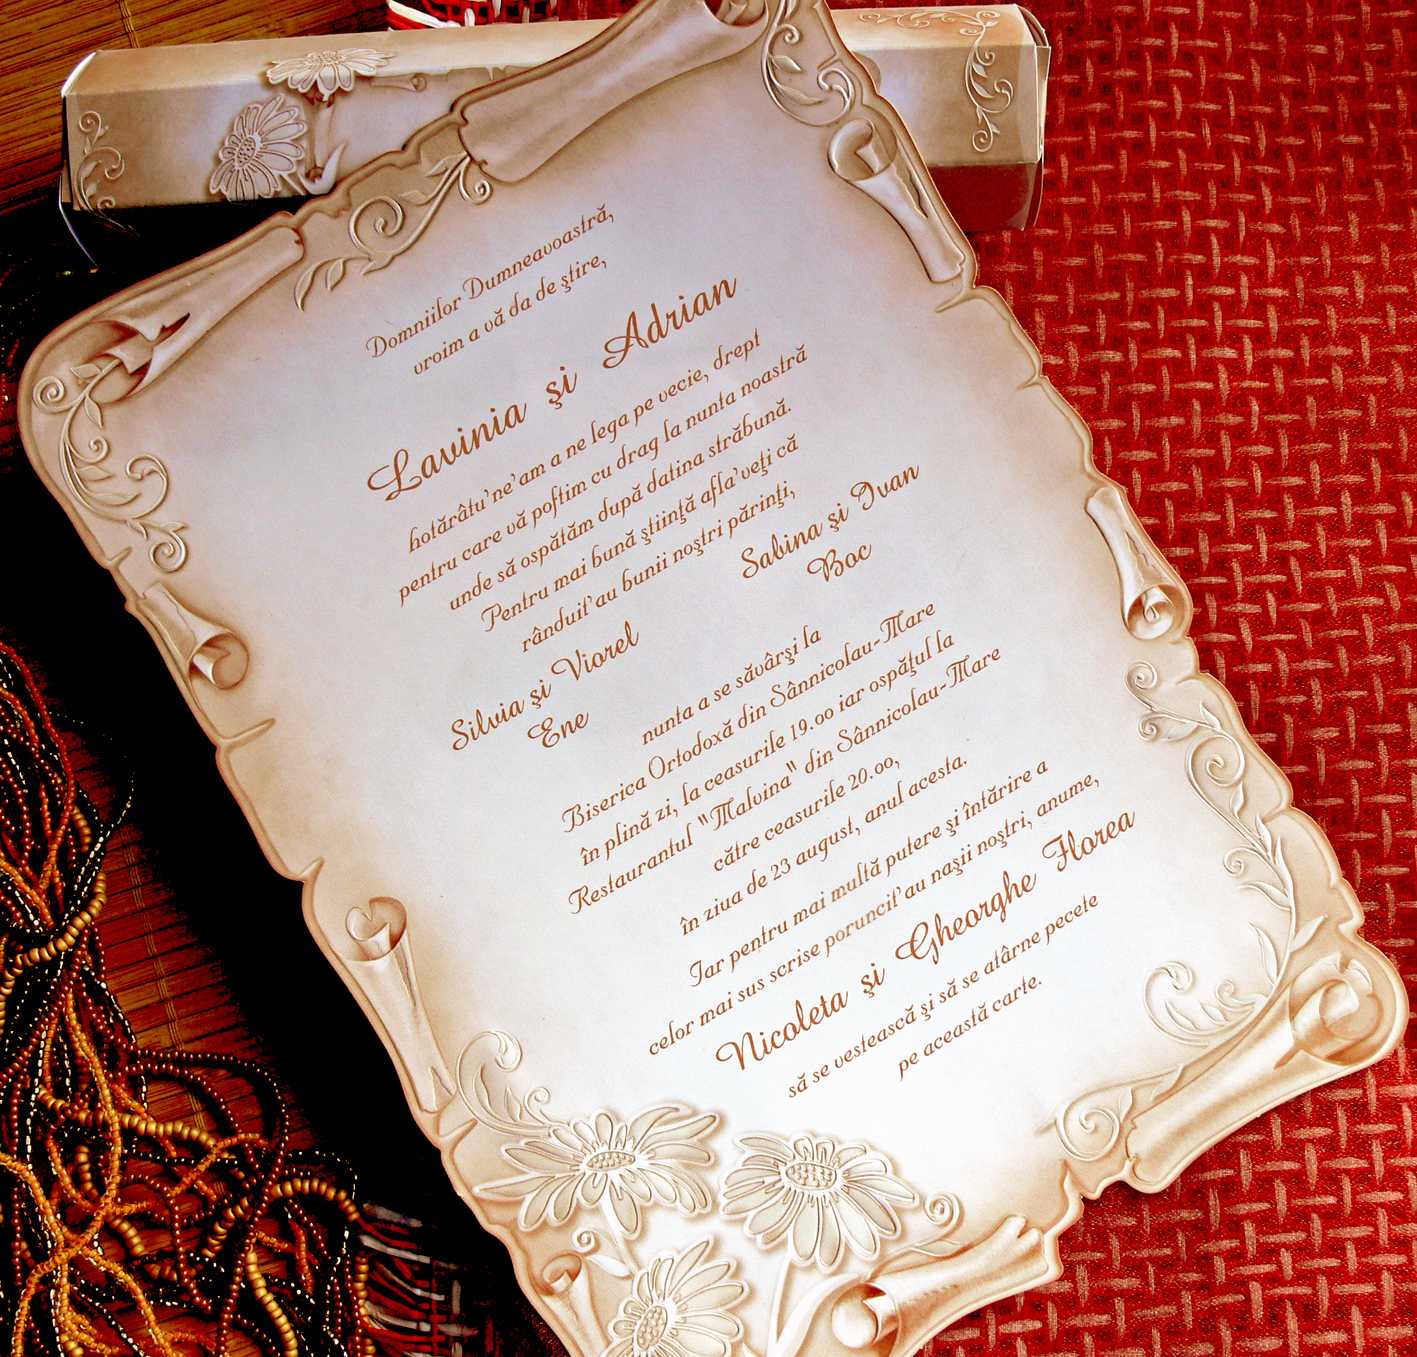 Domniilor Dumneavoastră,
vroim a vă da de ştire,
Lavinia şi Adrian
hotărâtu'ne'am a ne lega pe vecie, drept
pentru care vă poftim cu drag la nunta noastră
unde să ospătăm după datina străbună.
Pentru mai bună ştiinţă afla'veţi că
rânduit'au bunii noştri părinţi,
Silvia şi Viorel
Ene
Sabina şi Ivan
Boc
nunta a se săvârşi la
Biserica Ortodoxă din Sânnicolau-Mare
în plină zi, la ceasurile 19.00 iar ospăţul la
Restaurantul "Malvina" din Sânnicolau-Mare
către ceasurile 20.00,
în ziua de 23 august, anul acesta.
Iar pentru mai multă putere şi întărire a
celor mai sus scrise poruncit'au naşii noştri, anume,
Nicoleta şi Gheorghe Florea
să se vestească şi să se atârne pecete
pe această carte.